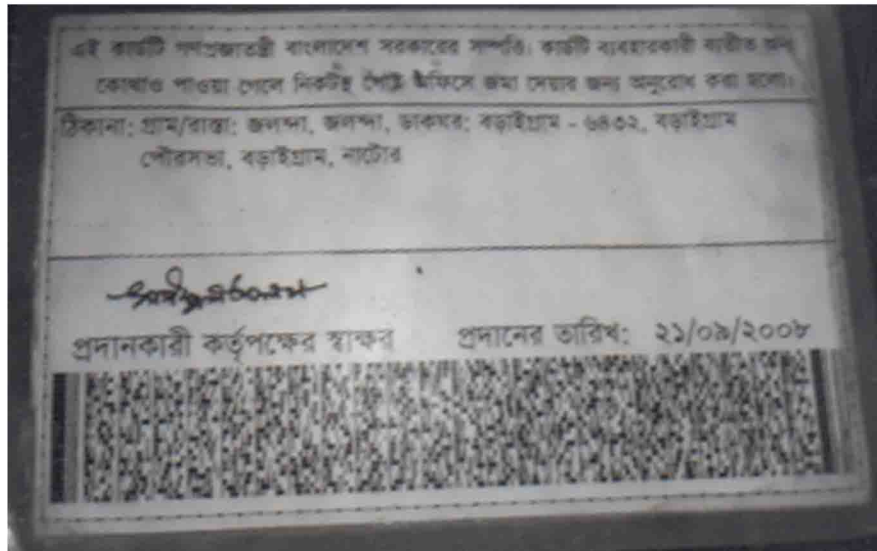 এই কার্ডটি গণপ্রজাতন্ত্রী বাংলাদেশ সরকারের সম্পত্তি। কার্ডটি ব্যবহারকারী ব্যতীত অন্য
কোথাও পাওয়া গেলে নিকটস্থ পোষ্ট অফিসে জমা দেয়ার জন্য অনুরোধ করা হলো।
ঠিকানা: গ্রাম/রাস্তা: জলন্দা, জলন্দা, ডাকঘর: বড়াইগ্রাম - ৬৪৩২, বড়াইগ্রাম
পৌরসভা, বড়াইগ্রাম, নাটোর
প্রদানকারী কর্তৃপক্ষের স্বাক্ষর প্রদানের তারিখ: ২১/০৯/২০০৮